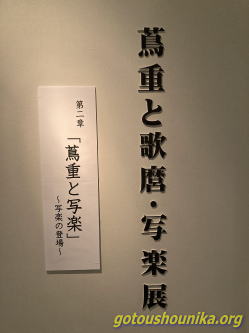 蔦重と歌麿・写楽展
第二章
「蔦重と写楽」
～写楽の登場～
gotoushounika.org